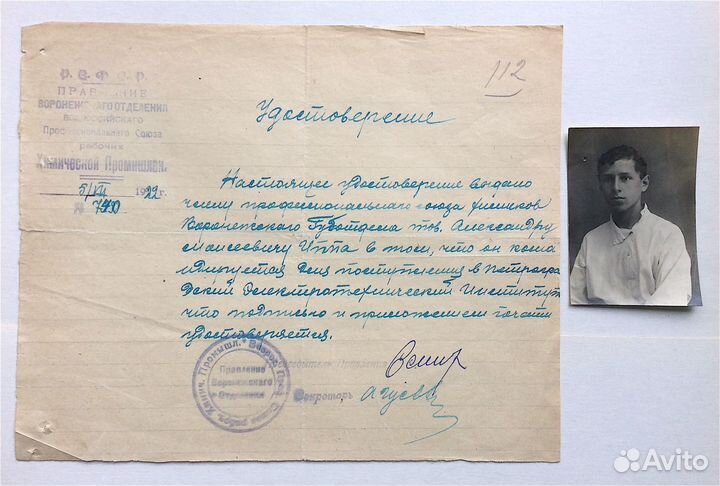 Р.С.Ф.С.Р.
ПРАВЛЕНИЕ
ВОРОНЕЖСКАГО ОТДЕЛЕНИЯ
ВСЕРОССИЙСКАГО
Профессиональнаго Союза
рабочих
Химической Промышлен.
5/VII 1922 г.
№ 790
112
Удостоверение
Настоящее удостоверение выдано
члену профессионального союза химиков
Воронежского Губотдела тов. Александру
Моисеевичу Иппа в том, что он кома
ндируется для поступления в Петрогра
дский Электротехнический Институт
что подписью и приложением печати
удостоверяется.
Председатель Правления
Секретарь
Правление
Воронежскаго
Отделения
Avito